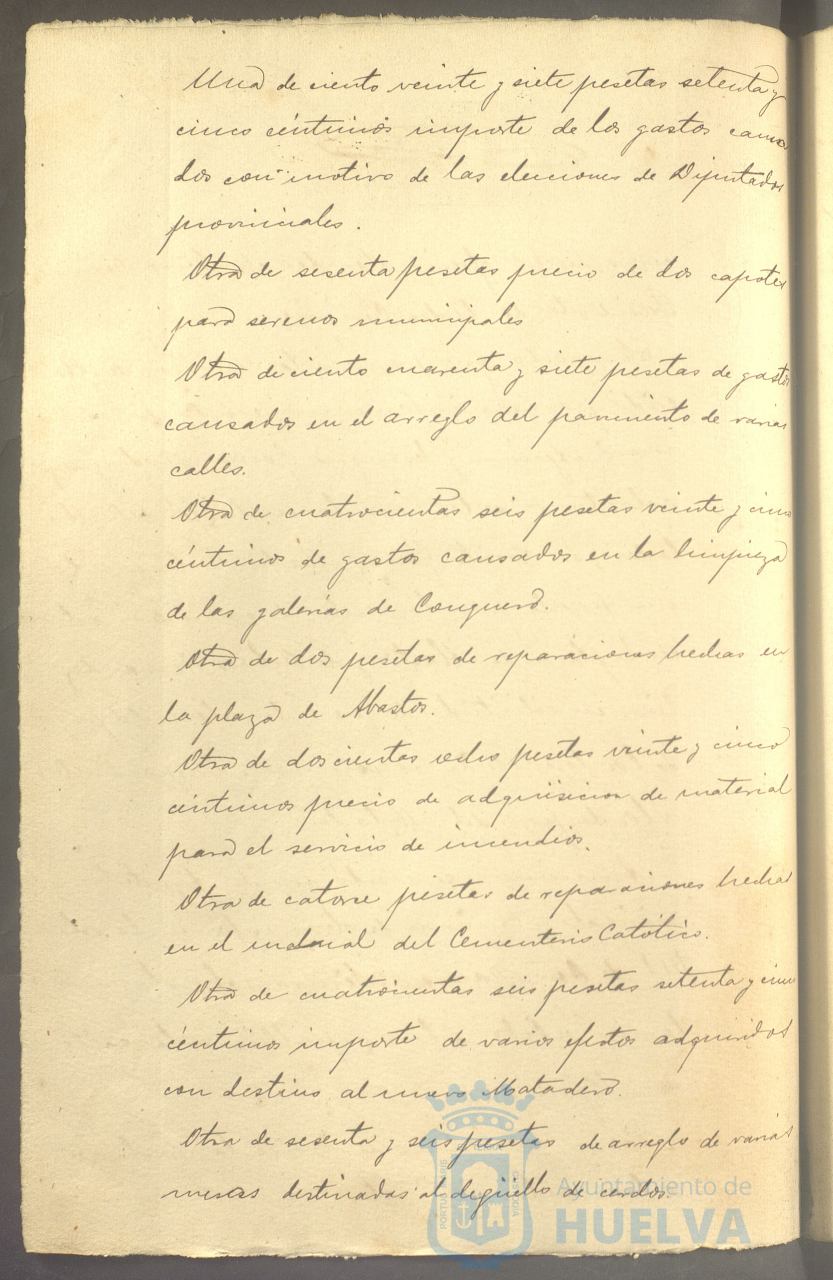 Una de ciento veinte y siete pesetas setenta y
cinco céntimos importe de los gastos causa
dos con motivo de las elecciones de Diputados
provinciales.
Otra de sesenta pesetas precio de dos capotes
para serenos municipales
Otra de ciento cuarenta y siete pesetas de gastos
causados en el arreglo del pavimento de varias
calles.
Otra de cuatrocientas seis pesetas veinte y cinco
céntimos de gastos causados en la limpieza
de las galerias de Conquero.
Otra de dos pesetas de reparaciones hechas en
la plaza de Abastos.
Otra de doscientas ocho pesetas veinte y cinco
céntimos precio de adquisicion de material
para el servicio de incendios.
Otra de catorce pesetas de reparaciones hechas
en el del Cementerio Católico.
Otra de cuatrocientas seis pesetas setenta y cinco
céntimos importe de varios efectos adquiridos
con destino al nuevo Matadero.
Otra de sesenta y seis pesetas de arreglo de varias
mesas destinadas al degüello de cerdos.
Ayuntamiento de
HUELVA